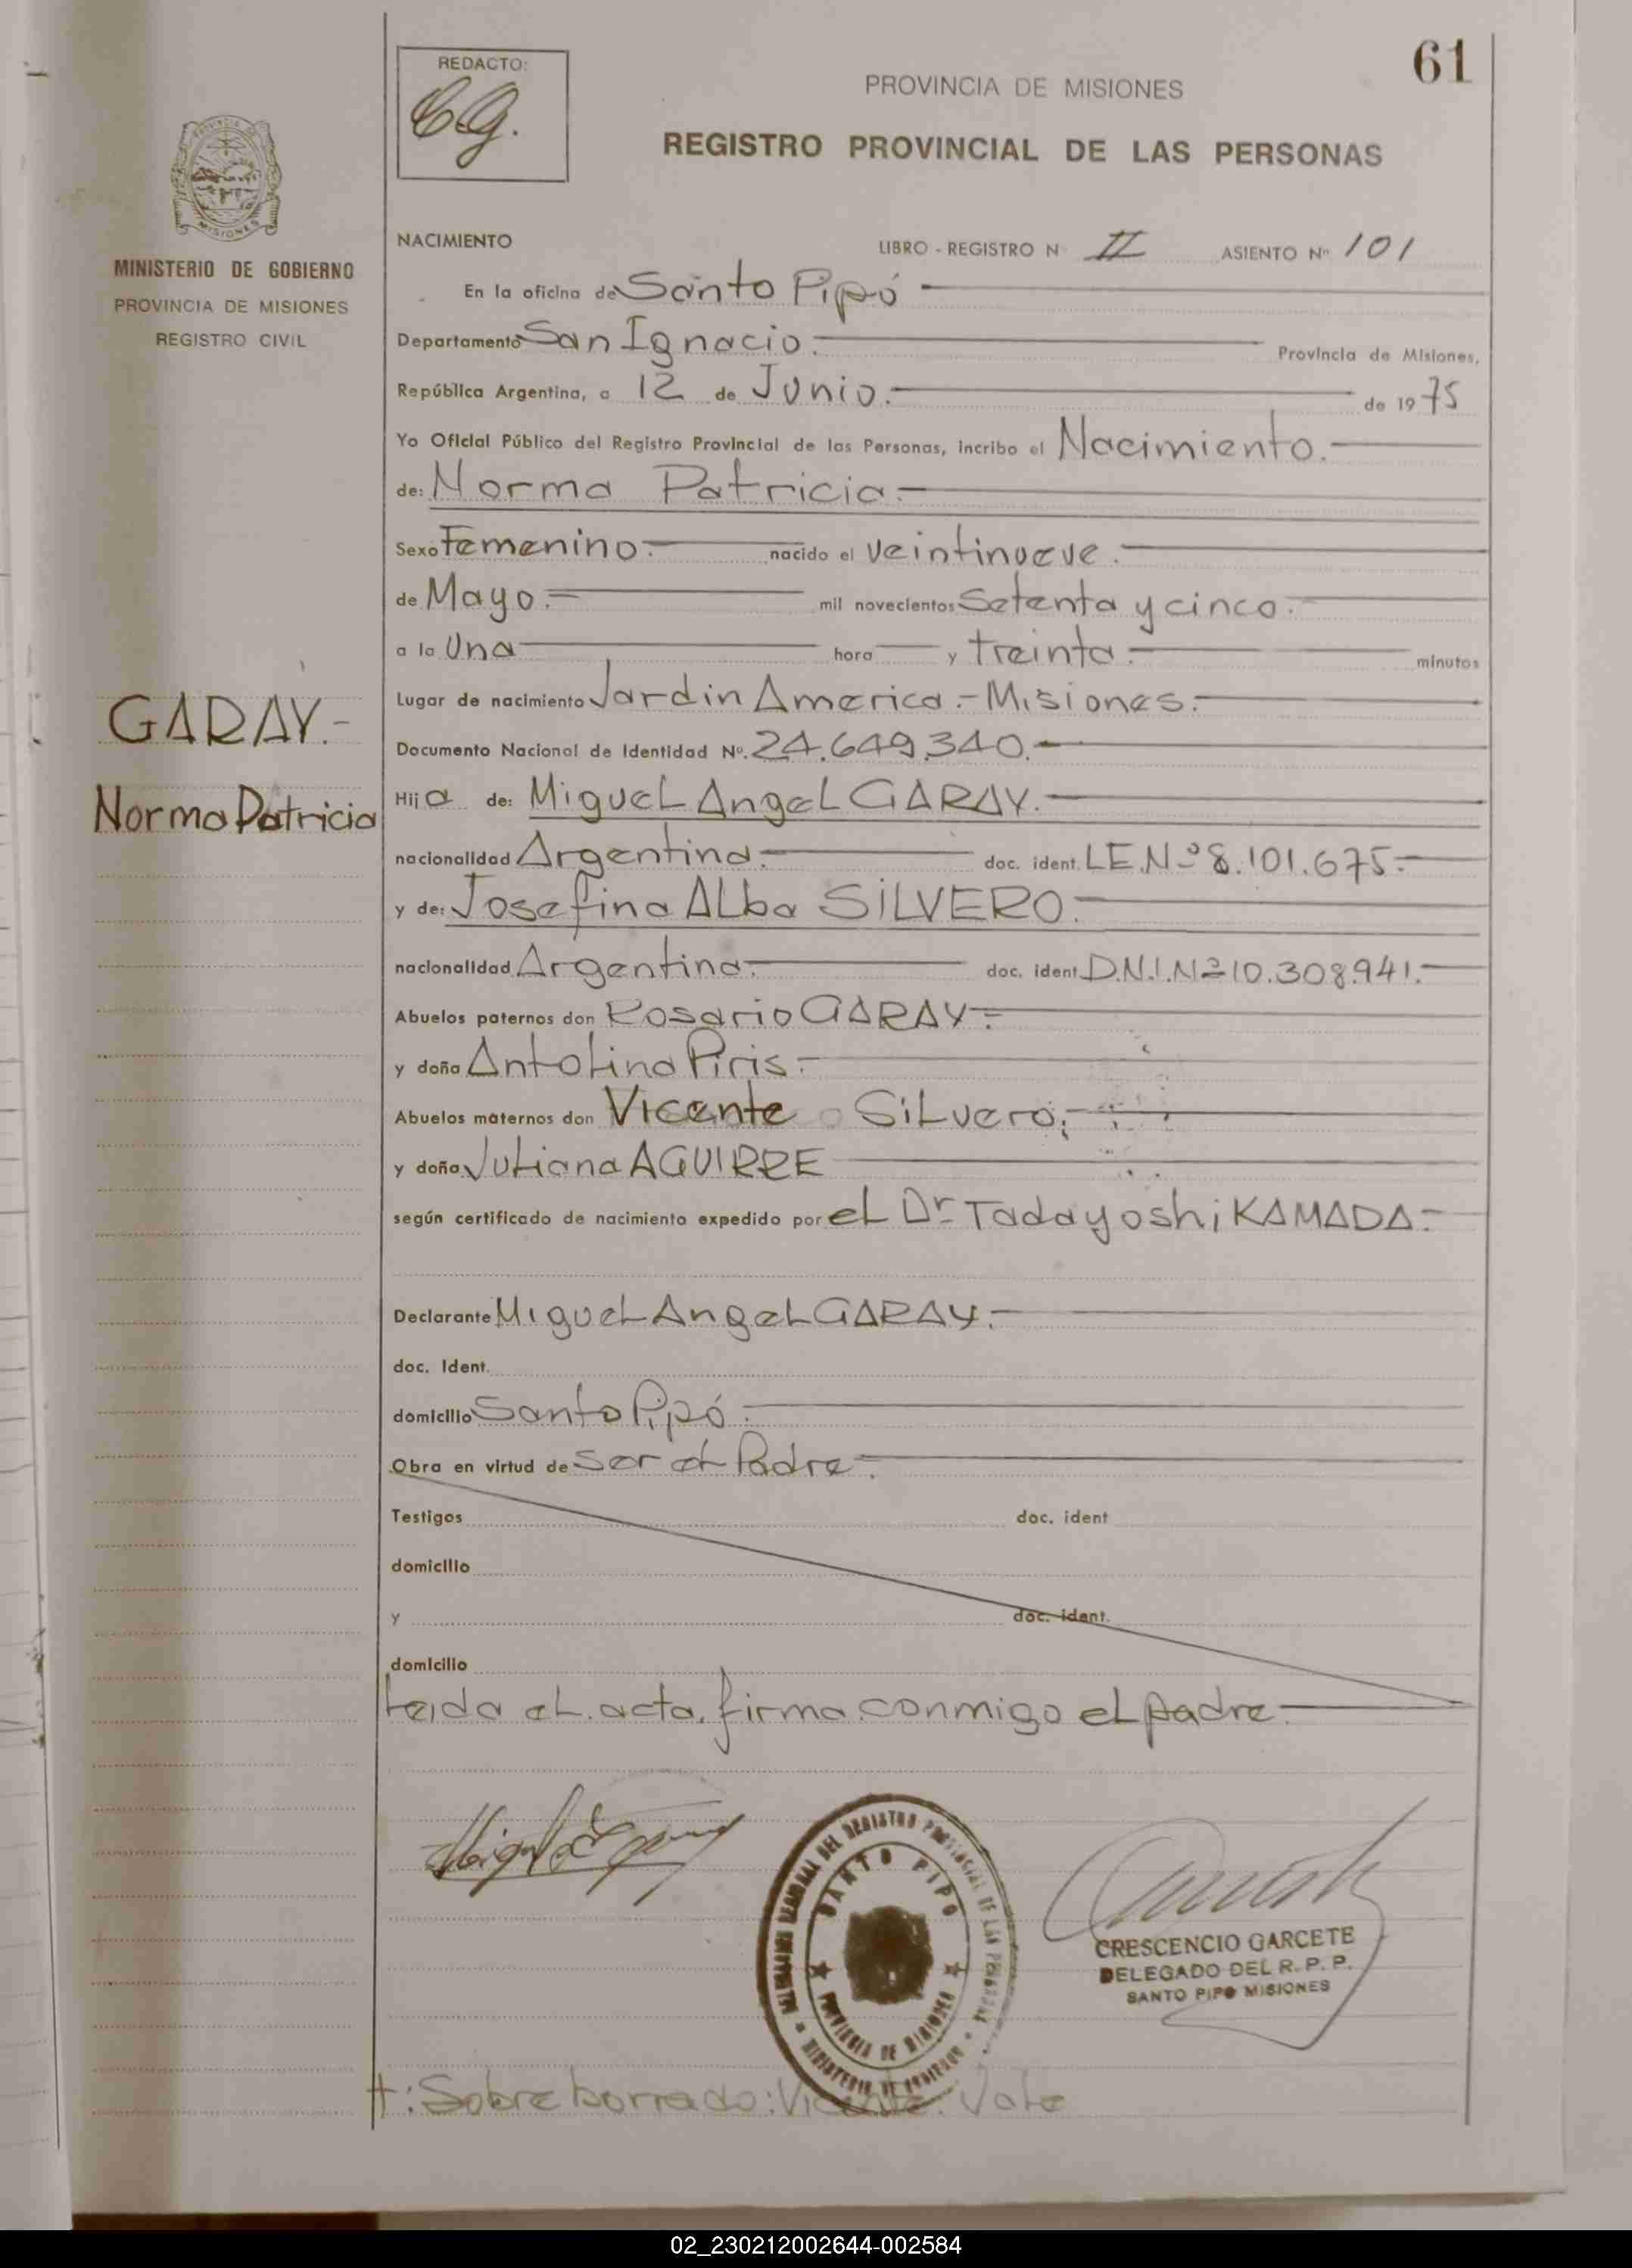 61
REDACTO:
C.G.
PROVINCIA DE MISIONES
REGISTRO PROVINCIAL DE LAS PERSONAS
MINISTERIO DE GOBIERNO
PROVINCIA DE MISIONES
REGISTRO CIVIL
NACIMIENTO LIBRO - REGISTRO N II ASIENTO Nº 101
En la oficina de Santo Pipó
Departamento San Ignacio. Provincia de Misiones,
República Argentina, a 12 de Junio. de 1975
Yo Oficial Público del Registro Provincial de las Personas, incribo el Nacimiento.
de: Norma Patricia
Sexo Femenino. nacido el veintinueve.
de Mayo. mil novecientos Setenta y cinco.
a la Una hora y treinta. minutos
Lugar de nacimiento Jardin America.- Misiones.
Documento Nacional de Identidad Nº. 24.649.340.
GARAY.-
Norma Patricia
Hija de: Miguel Angel GARAY.
nacionalidad Argentina. doc. ident. L.E.Nº 8.101.675.
y de: Josefina Alba SILVERO.
nacionalidad Argentina. doc. ident D.N.I.Nº 10.308.941.
Abuelos paternos don Rosario GARAY.
y doña Antolina Piris.
Abuelos maternos don Vicente Silvero;
y doña Juliana AGUIRRE
según certificado de nacimiento expedido por el Dr Tadayoshi KAMADA.
Declarante Miguel Angel GARAY.
doc. Ident.
domicilio Santo Pipó.
Obra en virtud de ser el Padre.
Testigos doc. ident
domicilio
y doc. ident.
domicilio
Leida el acta, firma conmigo el padre.
SANTO PIPO
PROVINCIA DE MISIONES
MINISTERIO DE GOBIERNO
CRESCENCIO GARCETE
DELEGADO DEL R. P. P.
SANTO PIPO MISIONES
t: Sobre borrado: Vicente. Vale
02_230212002644-002584